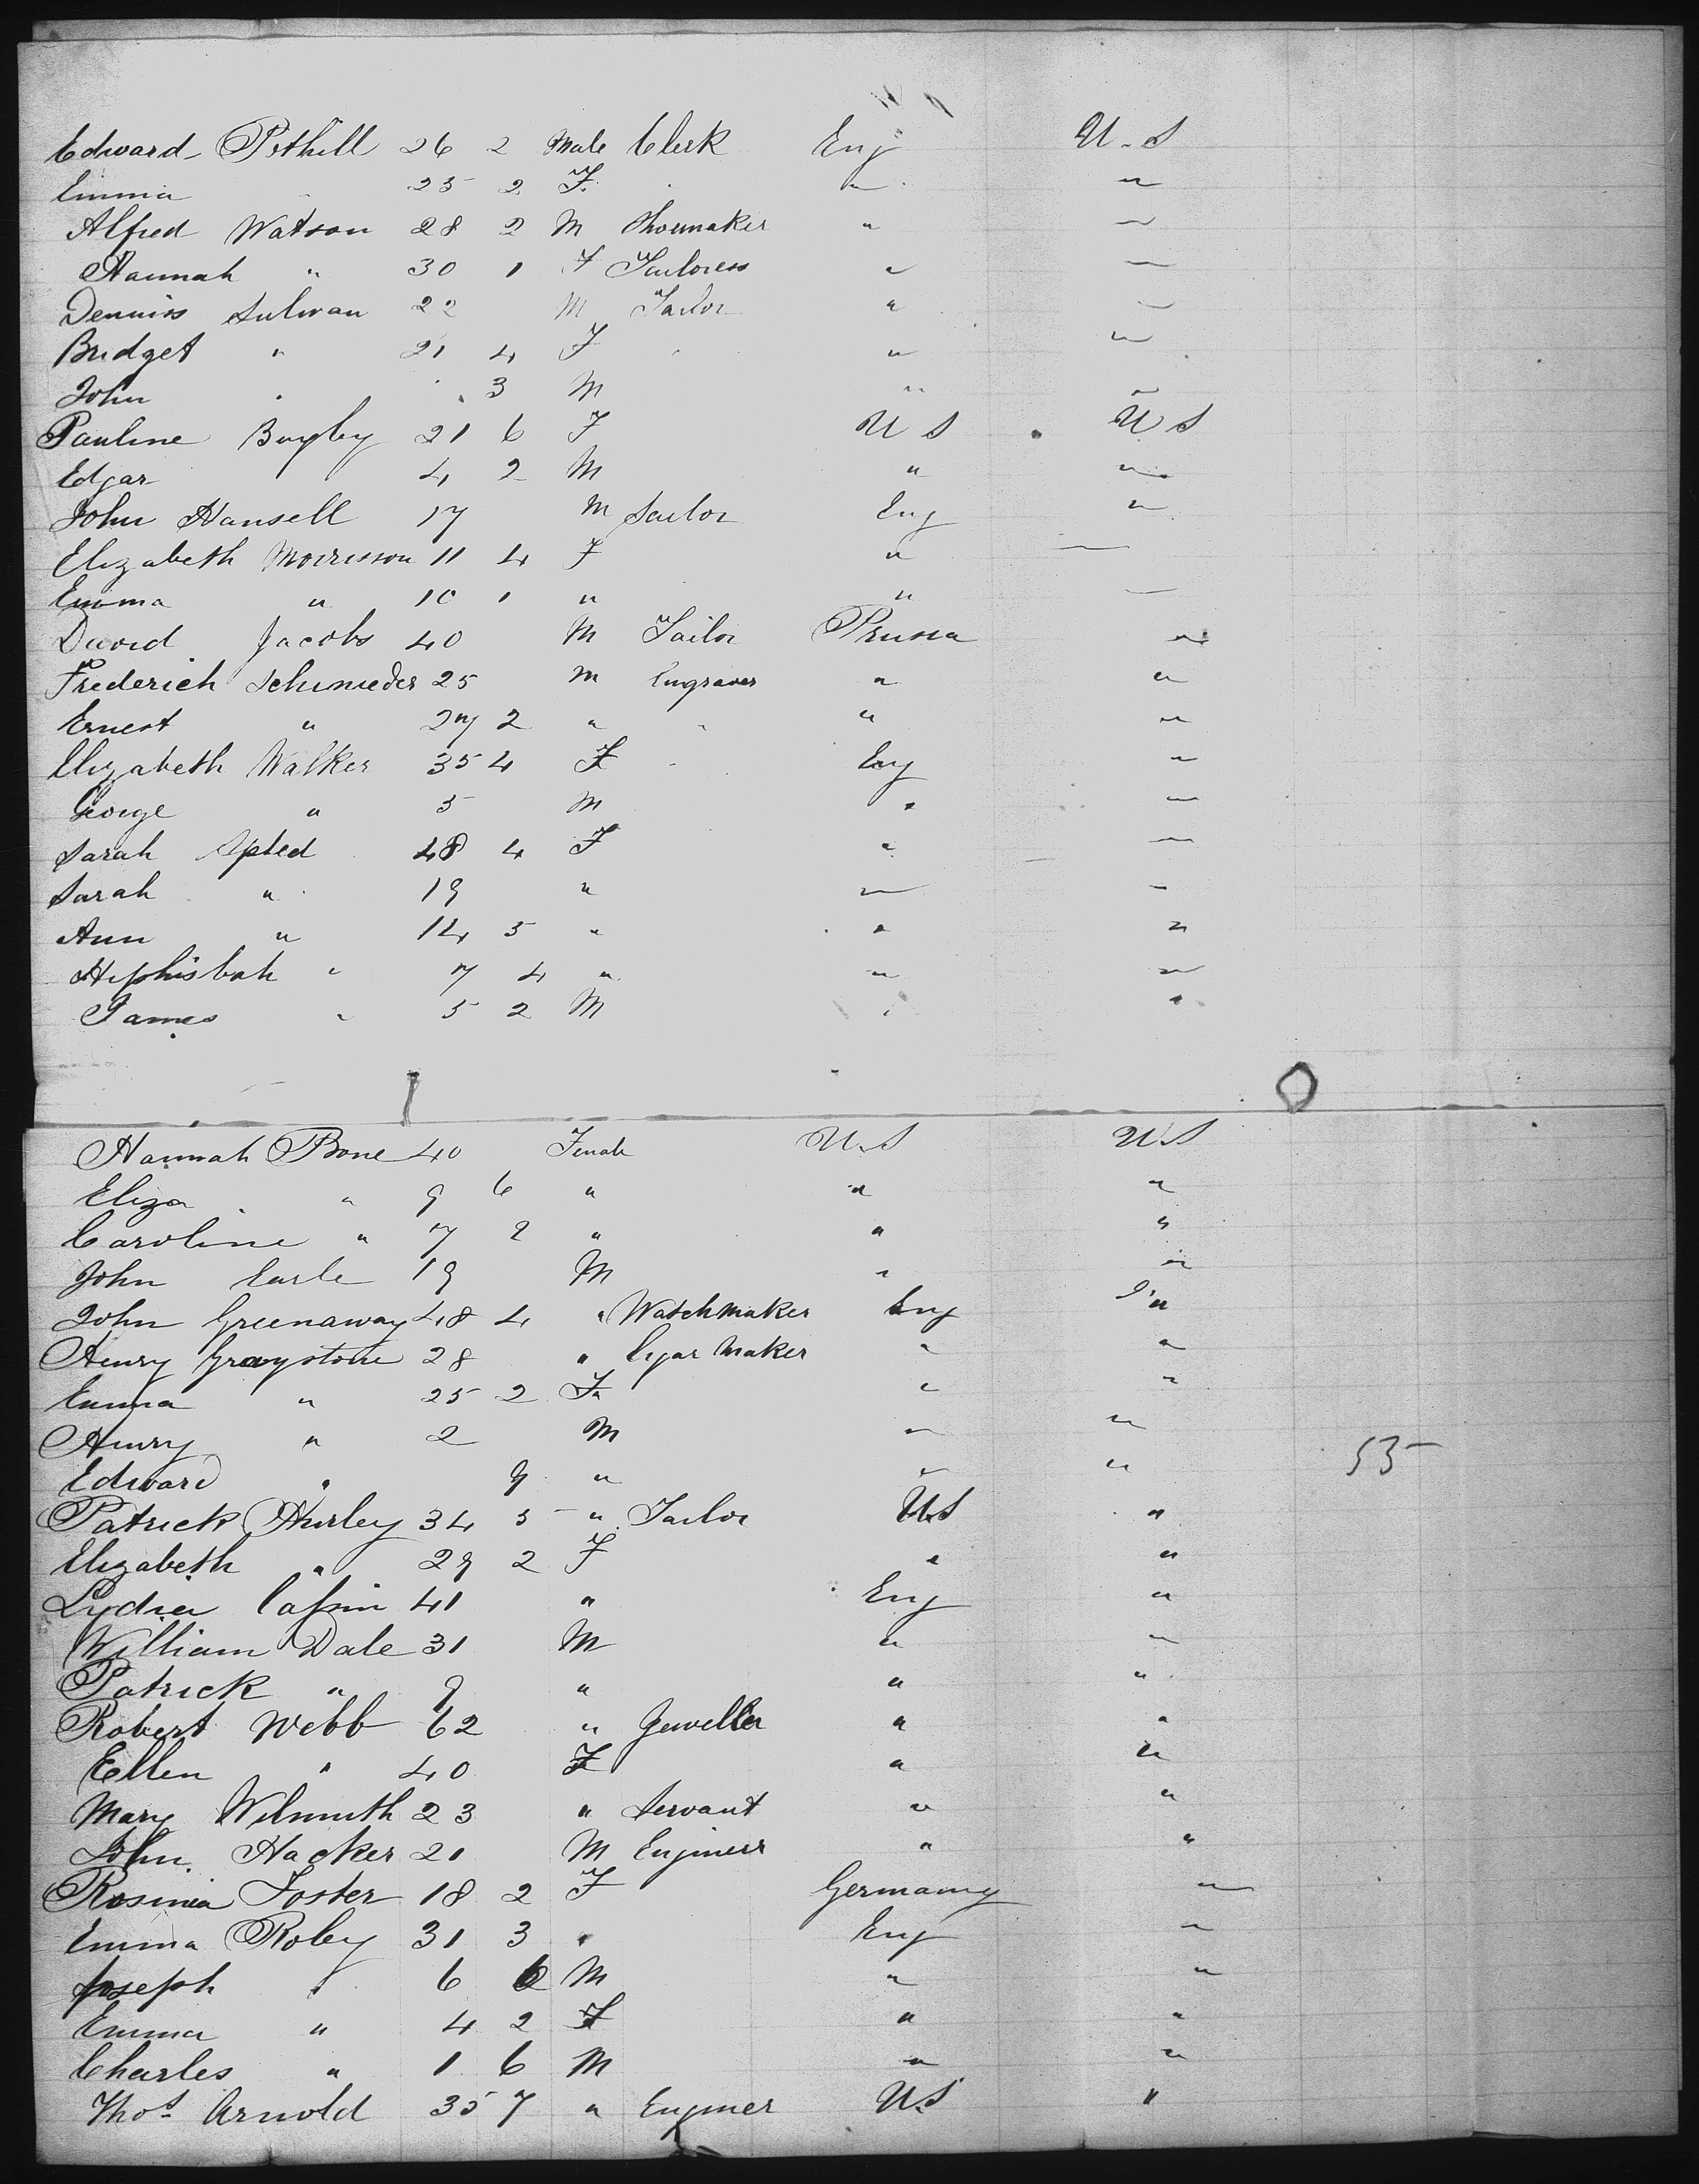 Edward Pethill 26 2 Male Clerk Eng U.S
Emma 25 2 F. "
Alfred Watson 28 2 M Shoemaker " "
Hannah " 30 1 F Tailoress " "
Dennis Sulivan 22 M Tailor " "
Bridget " 21 4 F " "
John " 3 M " "
Pauline Bugby 21 6 F U S U S
Edgar 4 2 M " "
John Hansell 17 M Sailor Eng "
Elizabeth Morrisson 11 4 F " "
Emma " 10 1 " " "
David Jacobs 40 M Tailor Prussia "
Frederich Schmieder 25 M Engraver " "
Ernest " 27 2 " " " "
Elizabeth Walker 35 4 F Eng "
George " 5 M " "
Sarah Apted 48 4 F " "
Sarah " 19 " " "
Ann " 14 5 " " "
Hephisbah " 7 4 " " "
James " 5 2 M " "
Hannah Bone 40 Female U.S U.S
Eliza " 9 6 " " "
Caroline " 7 2 " " "
John Earle 19 M " "
John Greenaway 48 4 " Watchmaker Eng "
Henry Graystone 28 " Cigar Maker " "
Emma " 25 2 F " "
Henry " 2 M " "
53
Edward " 9 " " "
Patrick Hurley 34 5 " Tailor U.S "
Elizabeth " 29 2 F " "
Lydia Cassin 41 " Eng "
William Dale 31 M " "
Patrick " 9 " " "
Robert Webb 62 " Jeweller " "
Ellen " 40 F " "
Mary Wilmuth 23 " Servant " "
John Hacker 21 M Engineer " "
Rosinia Foster 18 2 F Germany "
Emma Roby 31 3 " Eng "
Joseph " 6 M " "
Emma " 4 2 F " "
Charles " 1 6 M " "
Thos Arnold 35 7 " Engineer U.S "